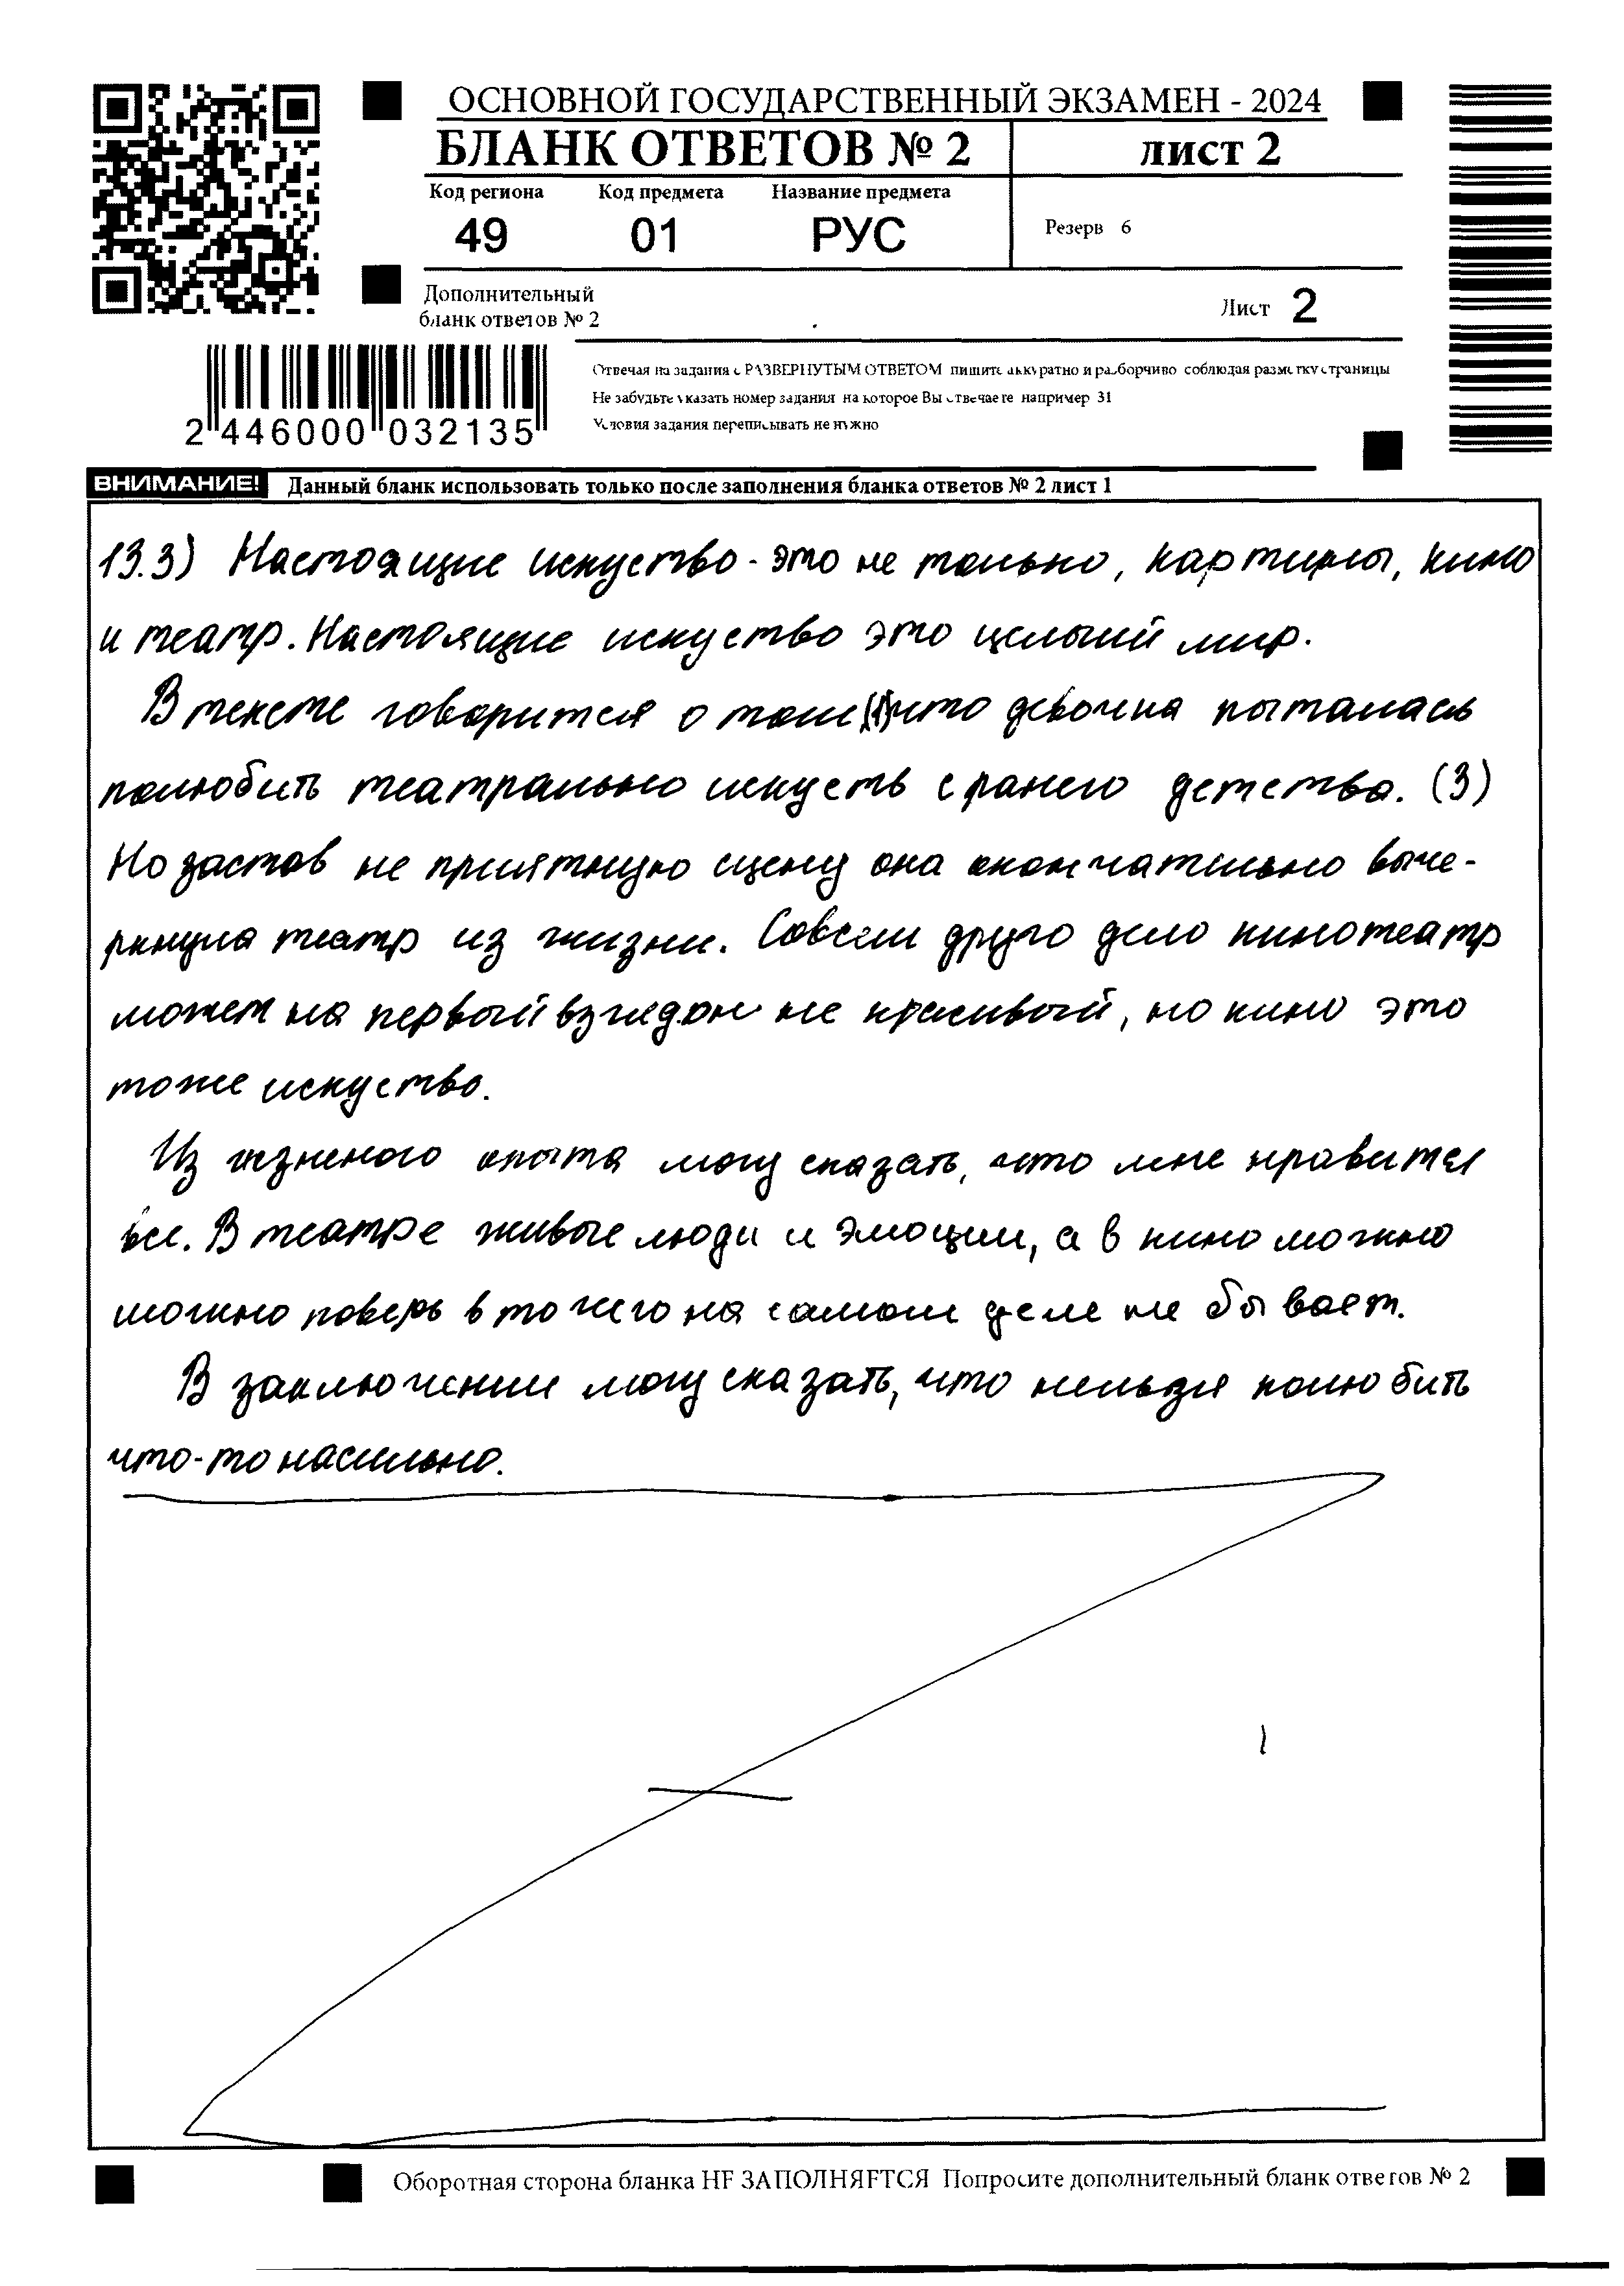 ОСНОВНОЙ ГОСУДАРСТВЕННЫЙ ЭКЗАМЕН - 2024
БЛАНК ОТВЕТОВ № 2 лист 2
Код региона Код предмета Название предмета
49 01 РУС
Резерв 6
Дополнительный
бланк ответов № 2
Лист 2
Отвечая на задания с РАЗВЕРНУТЫМ ОТВЕТОМ пишите аккуратно и разборчиво соблюдая разметку страницы
Не забудьте указать номер задания на которое Вы отвечаете например 31
Условия задания переписывать не нужно
2 446000 032135
ВНИМАНИЕ! Данный бланк использовать только после заполнения бланка ответов № 2 лист 1
13.3) Настоящие искуство - это не только, картины, кино
и театр. Настоящие искуство это целый мир.
В тексте говорится о том что девочка пыталась
полюбить театрально искусть с ранего детства. (3)
Но застав не приятную сцену она окончательно выче-
ркнула театр из жизни. Совсем друго дело кинотеатр
может на первый взгляд он не красивый, но кино это
тоже искуство.
Из жзненого опыта могу сказать, что мне нравится
все. В театре живые люди и эмоции, а в кино можно
можно поверь в то чего на самом деле не бывает.
В заключении могу сказать, что нельзя полюбить
что-то насильно.
Оборотная сторона бланка НЕ ЗАПОЛНЯЕТСЯ Попросите дополнительный бланк ответов № 2